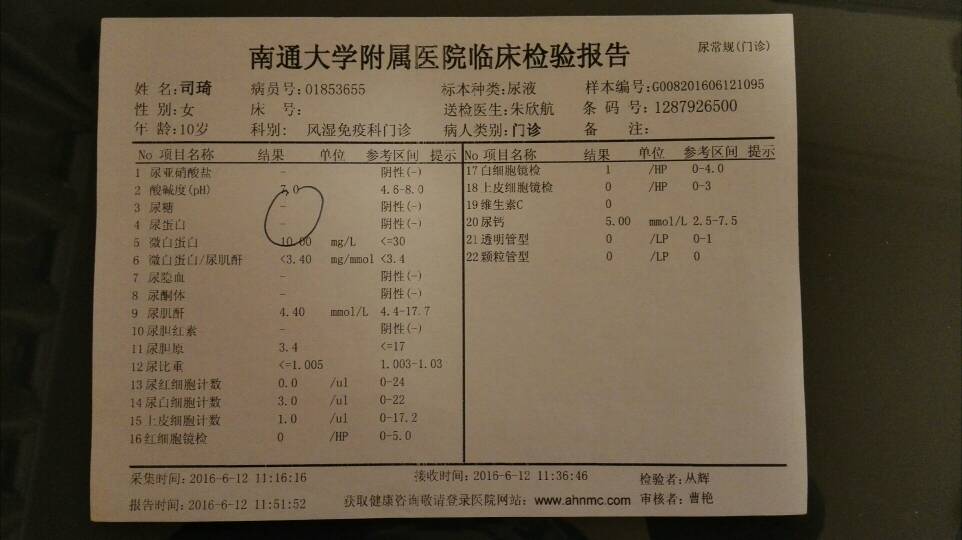 南通大学附属医院临床检验报告
尿常规(门诊)
姓 名:司琦 病员号:01853655 标本种类:尿液 样本编号:G008201606121095
性 别:女 床 号: 送检医生:朱欣航 条 码 号:1287926500
年 龄:10岁 科别: 风湿免疫科门诊 病人类别:门诊 备 注:
No 项目名称 结果 单位 参考区间 提示
1 尿亚硝酸盐 - 阴性(-)
2 酸碱度(pH) 7.0 4.6-8.0
3 尿糖 - 阴性(-)
4 尿蛋白 - 阴性(-)
5 微白蛋白 10.00 mg/L <=30
6 微白蛋白/尿肌酐 <3.40 mg/mmol <3.4
7 尿隐血 - 阴性(-)
8 尿酮体 - 阴性(-)
9 尿肌酐 4.40 mmol/L 4.4-17.7
10 尿胆红素 - 阴性(-)
11 尿胆原 3.4 <=17
12 尿比重 <=1.005 1.003-1.03
13 尿红细胞计数 0.0 /ul 0-24
14 尿白细胞计数 3.0 /ul 0-22
15 上皮细胞计数 1.0 /ul 0-17.2
16 红细胞镜检 0 /HP 0-5.0
No 项目名称 结果 单位 参考区间 提示
17 白细胞镜检 1 /HP 0-4.0
18 上皮细胞镜检 0 /HP 0-3
19 维生素C 0
20 尿钙 5.00 mmol/L 2.5-7.5
21 透明管型 0 /LP 0-1
22 颗粒管型 0 /LP 0
采集时间:2016-6-12 11:16:16 接收时间:2016-6-12 11:36:46 检验者:丛辉
报告时间:2016-6-12 11:51:52 获取健康咨询敬请登录医院网站: www.ahnmc.com 审核者:曹艳